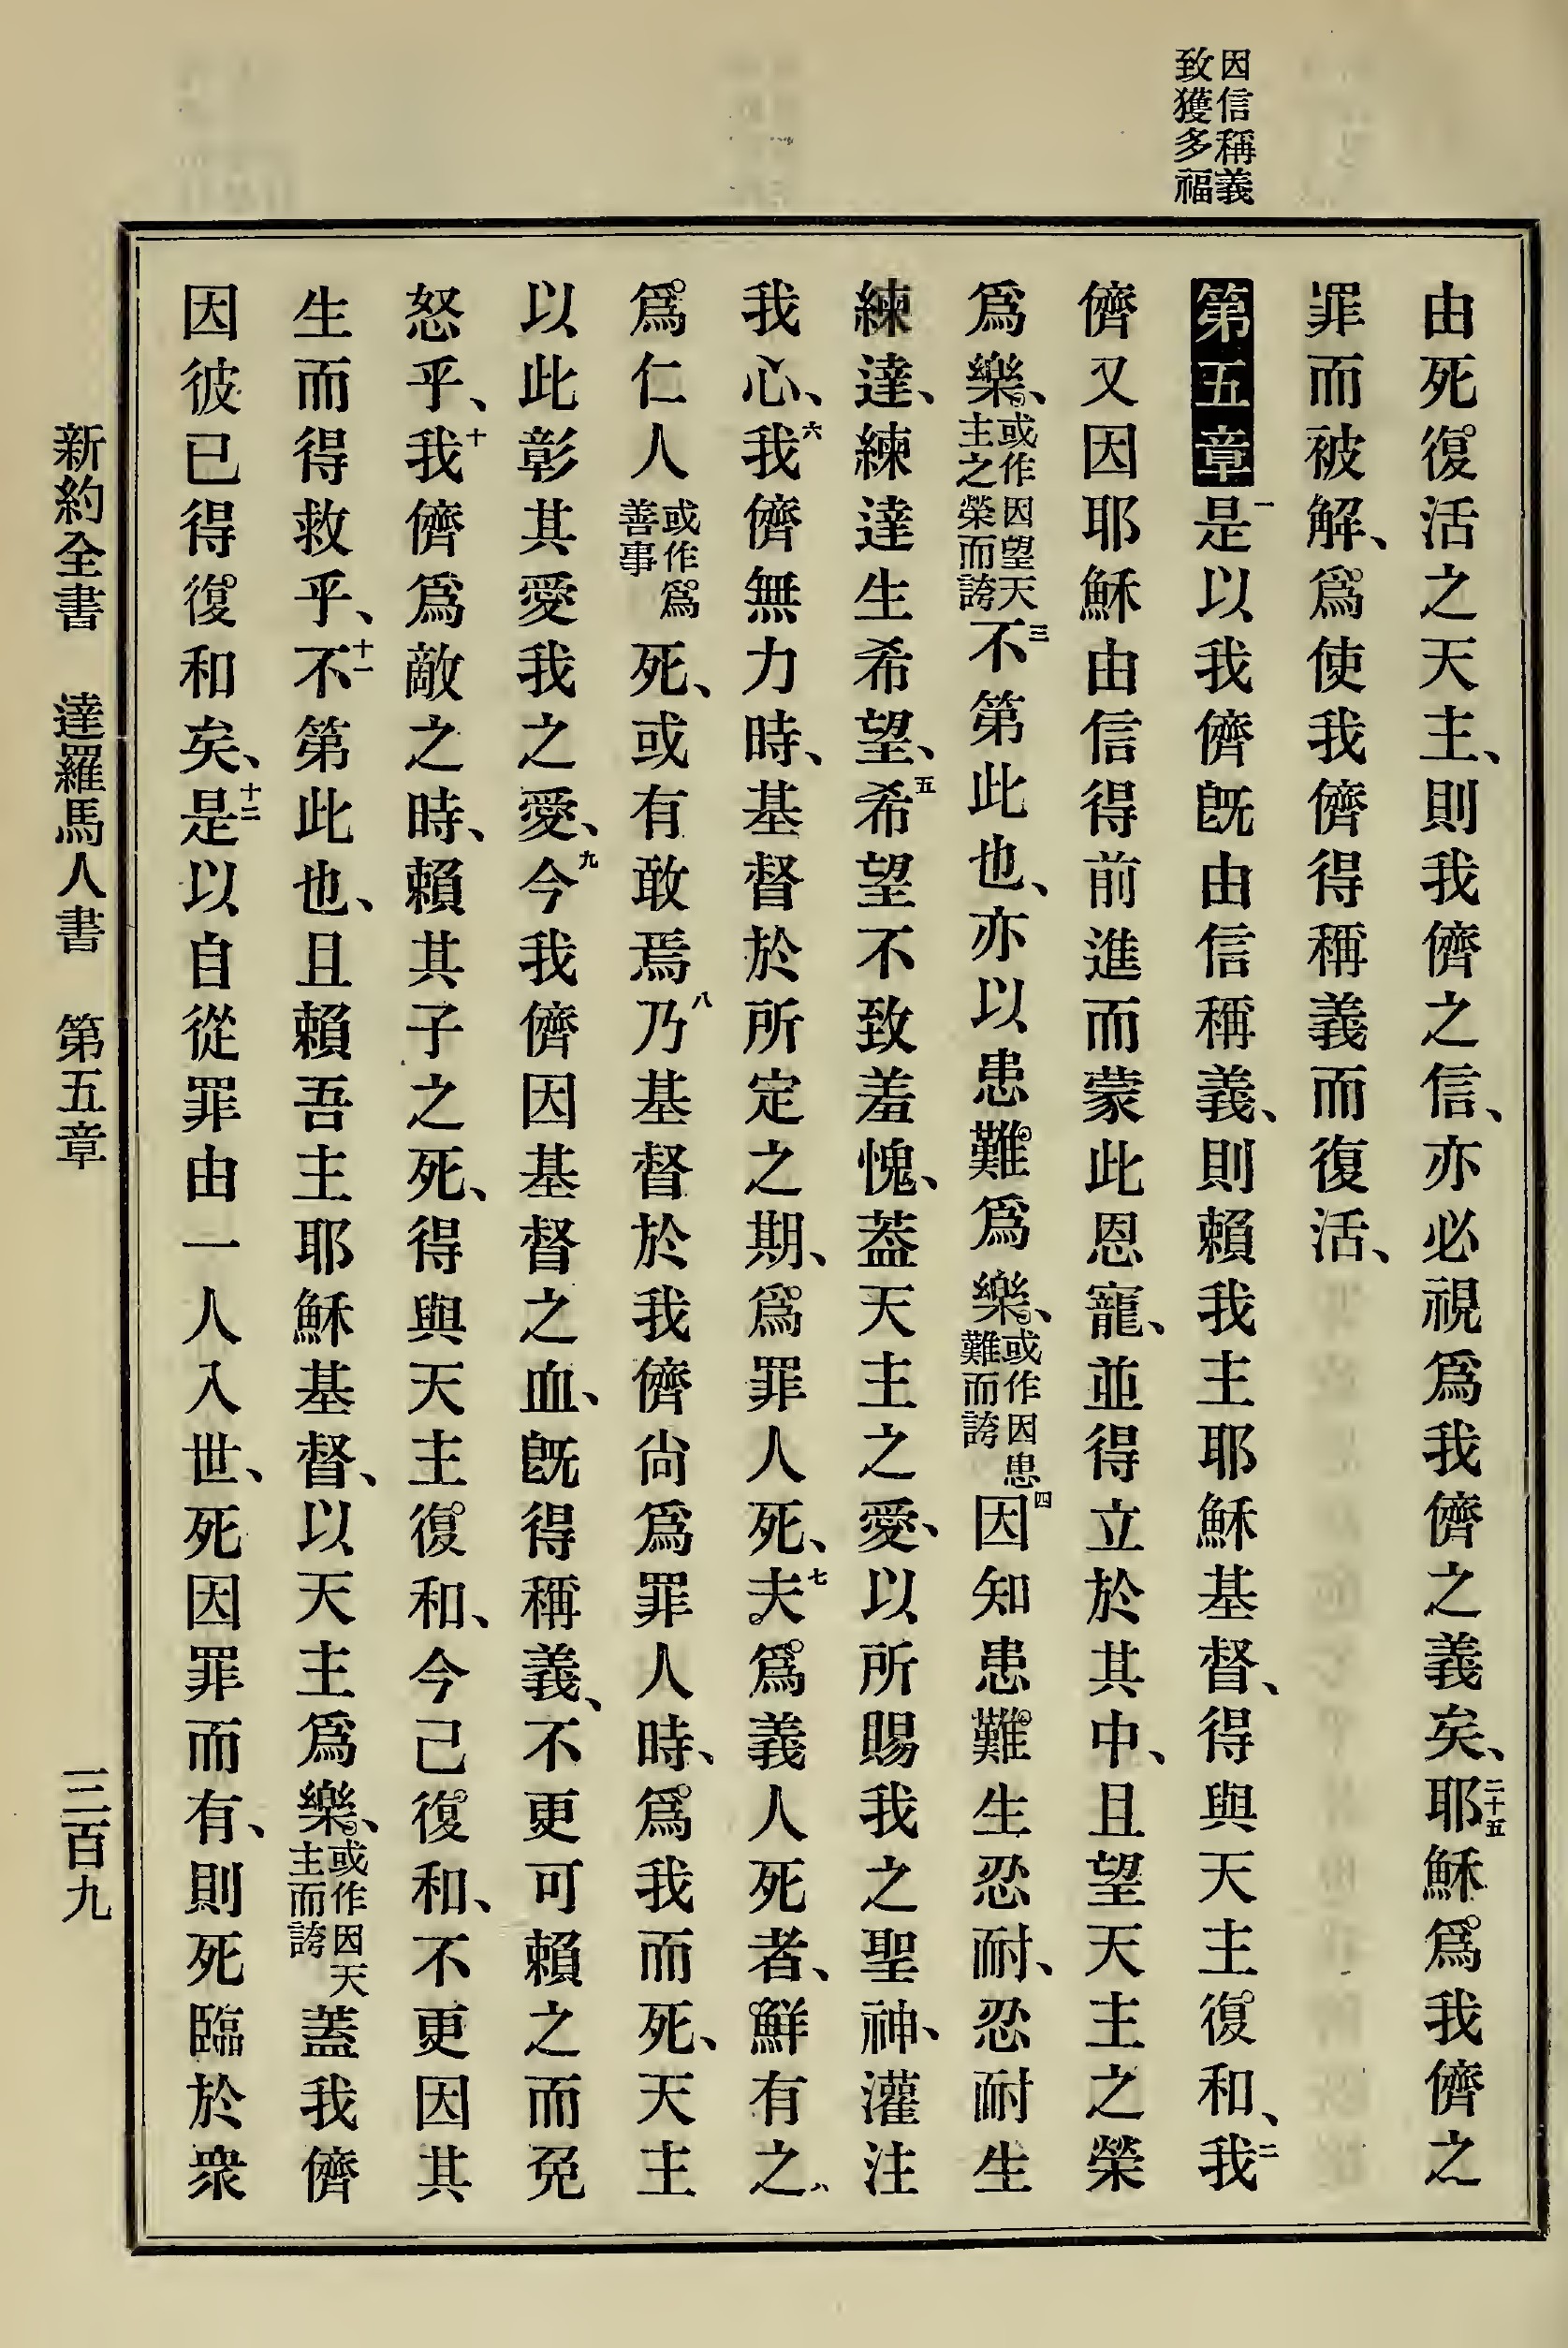 因信稱義
致獲多福
由死復活之天主、則我儕之信、亦必視爲我儕之義矣、二十五耶穌爲我儕之
罪而被解、爲使我儕得稱義而復活、
第五章一是以我儕旣由信稱義、則賴我主耶穌基督、得與天主復和、二我
儕又因耶穌由信得前進而蒙此恩寵、並得立於其中、且望天主之榮
爲樂、或作因望天主之榮而誇三不第此也、亦以患難爲樂、或作因患難而誇四因知患難生忍耐、忍耐生
練達、練達生希望、五希望不致羞愧、蓋天主之愛、以所賜我之聖神、灌注
我心、六我儕無力時、基督於所定之期、爲罪人死、七夫爲義人死者、鮮有之、
爲仁人或作爲善事死、或有敢焉八乃基督於我儕尙爲罪人時、爲我而死、天主
以此彰其愛我之愛、九今我儕因基督之血、旣得稱義、不更可賴之而免
怒乎、十我儕爲敵之時、賴其子之死、得與天主復和、今已復和、不更因其
生而得救乎、十一不第此也、且賴吾主耶穌基督、以天主爲樂、或作因天主而誇蓋我儕
因彼已得復和矣、十二是以自從罪由一人入世、死因罪而有、則死臨於衆
新約全書 達羅馬人書 第五章 三百九